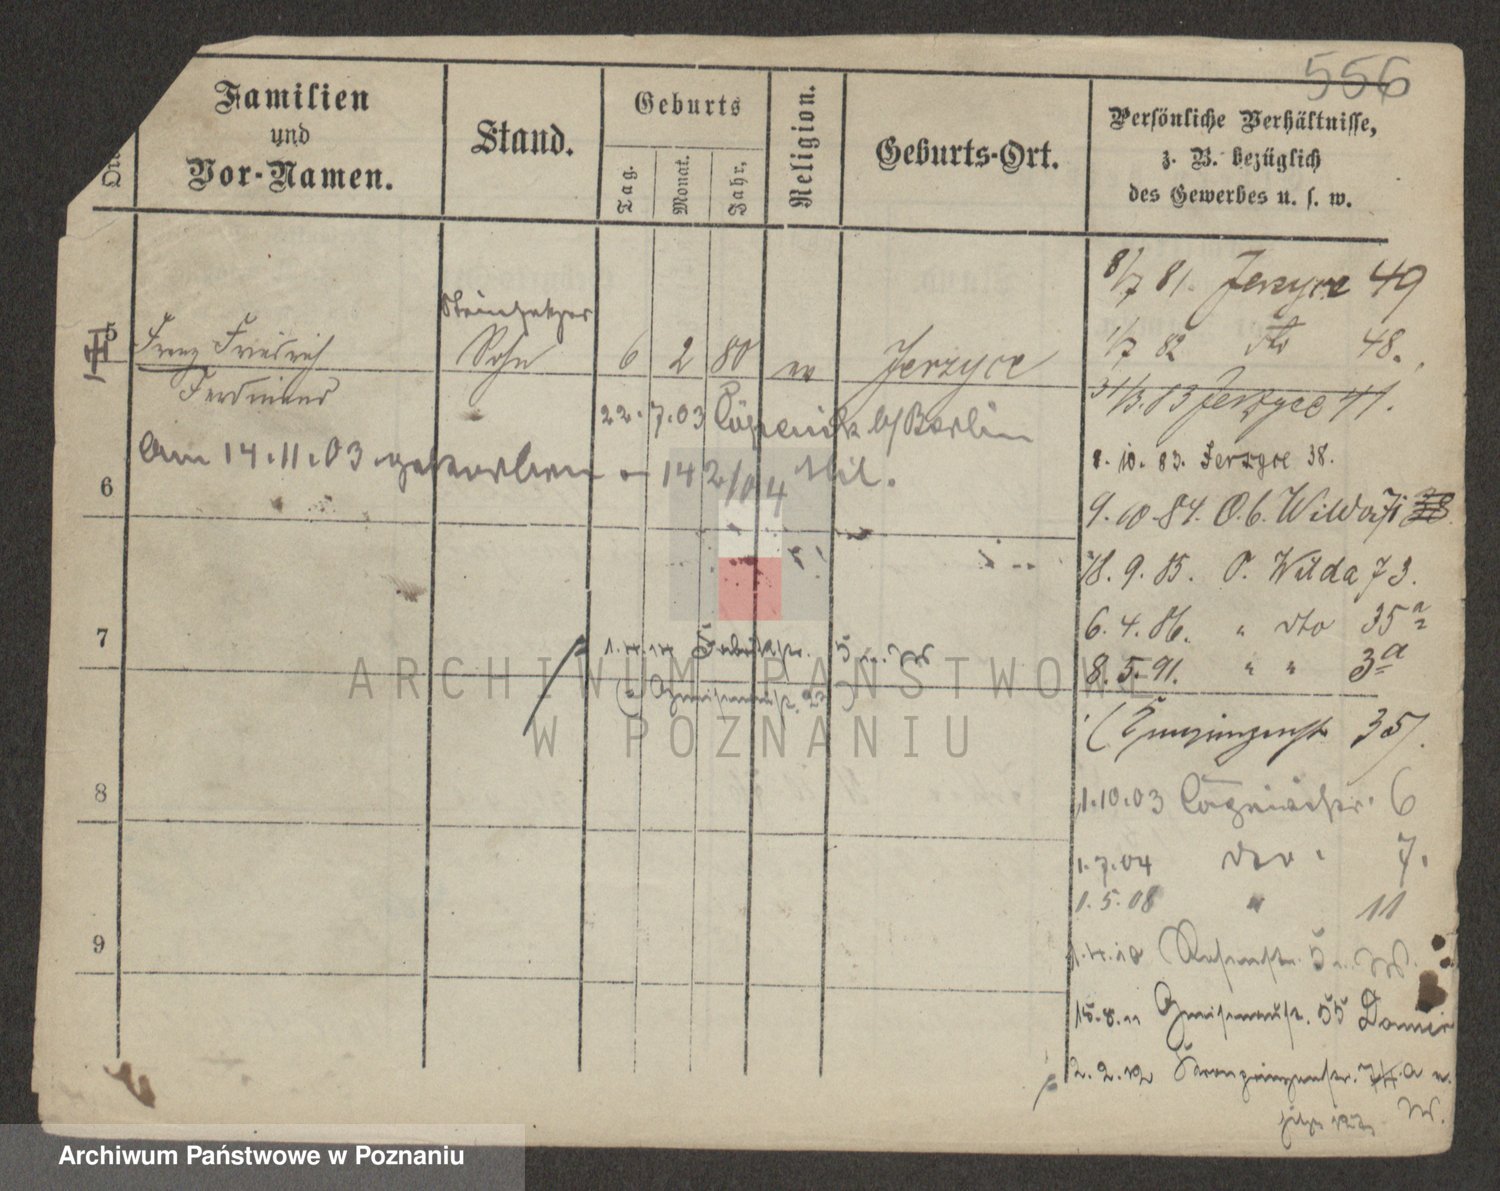 556
Familien
und
Vor-Namen.
Stand.
Geburts
Tag.
Monat.
Jahr.
Religion.
Geburts-Ort.
Persönliche Verhältnisse,
z. B. bezüglich
des Gewerbes u. s. w.
8/7 81. Jerzyce 49
1/7 82 dto 48.
31/3. 83 Jerzyce 41.
8. 10. 83. Jerzyce 38.
9. 10. 84. O. b. Wilda 71 38
18. 9. 85. O. Wilda 73.
6. 4. 86. " dto 35 a
8. 5. 91. " " 3 a
(Kronprinzenstr 35).
1.10.03 Cöpenickerstr. 6
1.7.04 dto. 7.
1.5.08 " 11
1.4.10 5 W.
15.8.11 Gneisenaustr. 55
2.2.12 Kronprinzenstr. 74 a W.
5
Franz Friedrich
Ferdinand
Sohn
6 2 80 Jerzyce
22.7.03 Cöpenick b/Berlin
Am 14.11.03 14 2/04 Mil.
6
7
1.4.14 5 W
(Gneisenaustr. )
8
9
ARCHIWUM PAŃSTWOWE
W POZNANIU
Archiwum Państwowe w Poznaniu